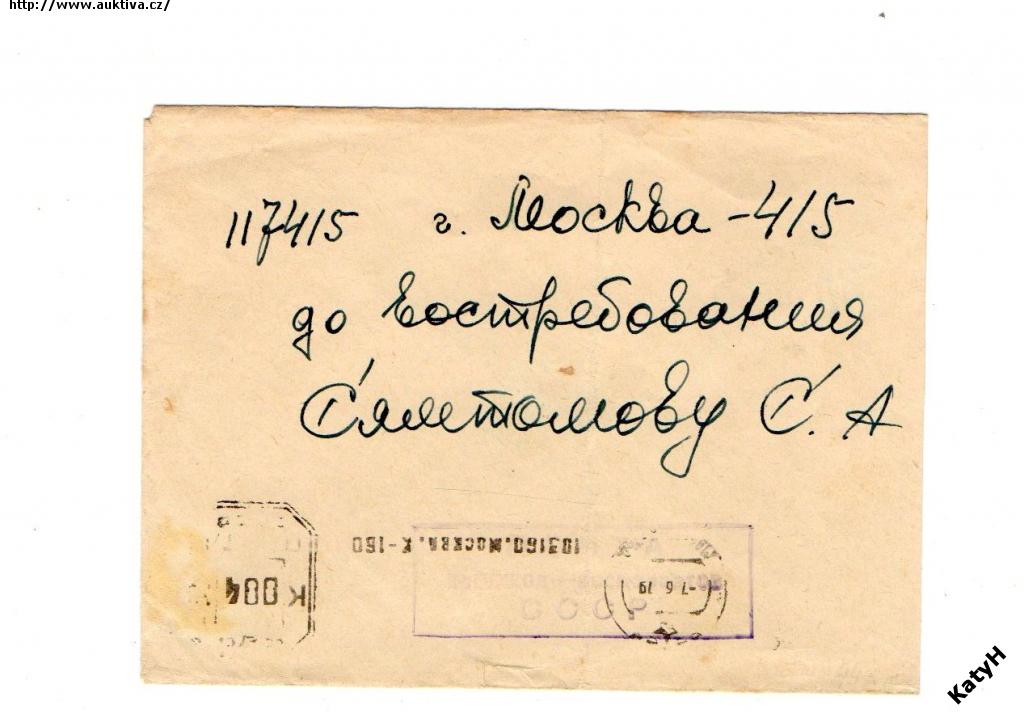 http://www.auktiva.cz/
117415 г. Москва-415
до востребования
Сямтомову С. А
103160.МОСКВА, К-160
К 004
-7.6 79
СССР
KatyH